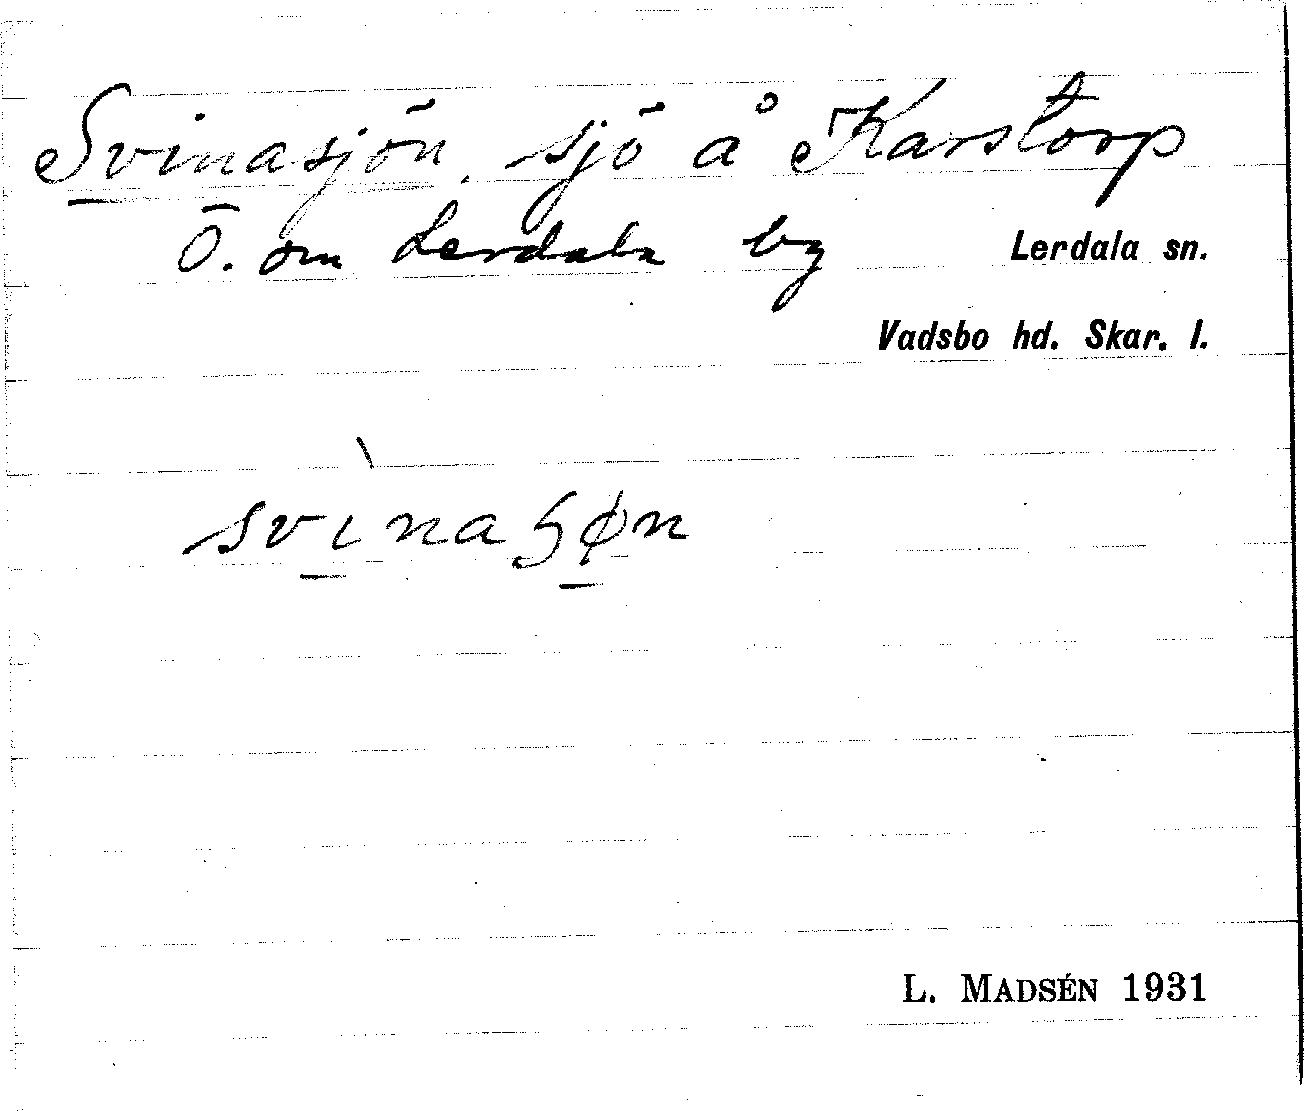 Svinasjön, sjö å Karstorp
Ö. om Lerdala by Lerdala sn.
Vadsbo hd. Skar. l.
svìnaʂøn
L. MADSÉN 1931